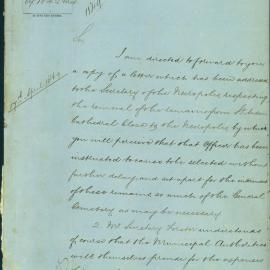 Sir
I am directed to forward to you
a copy of a letter which has been addressed
to the Secretary of the Necropolis respecting
the removal of the remains from St
Cathedral Close to the Necropolis by which
you will perceive that that Officer has been
instructed to cause to be selected without
further delay and set apart for the interment
of these remains so much of the General
Cemetery as may be necessary
2. Mr Secretary understands
of course that the Municipal Authorities
will themselves provide for the expenses